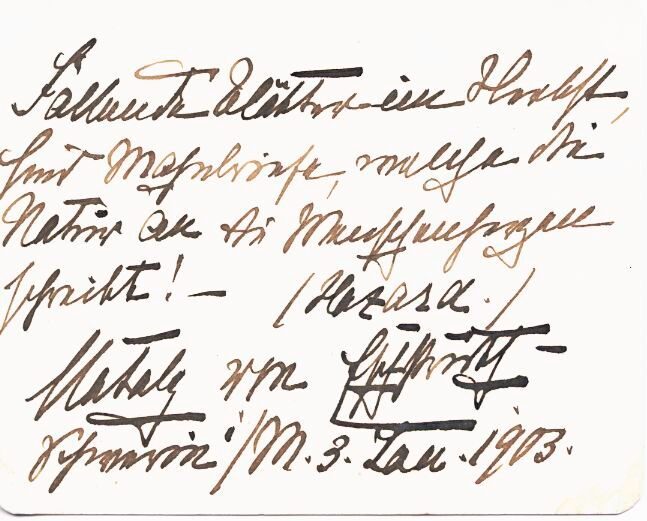 Fallende Blätter im Herbst,
sind Mahnbriefe, welche die
Natur an die Menschenherzen
schreibt! – (Hazard.)
Nataly von Eschstruth –
Schwerin i/M. 3. Jan. 1903.